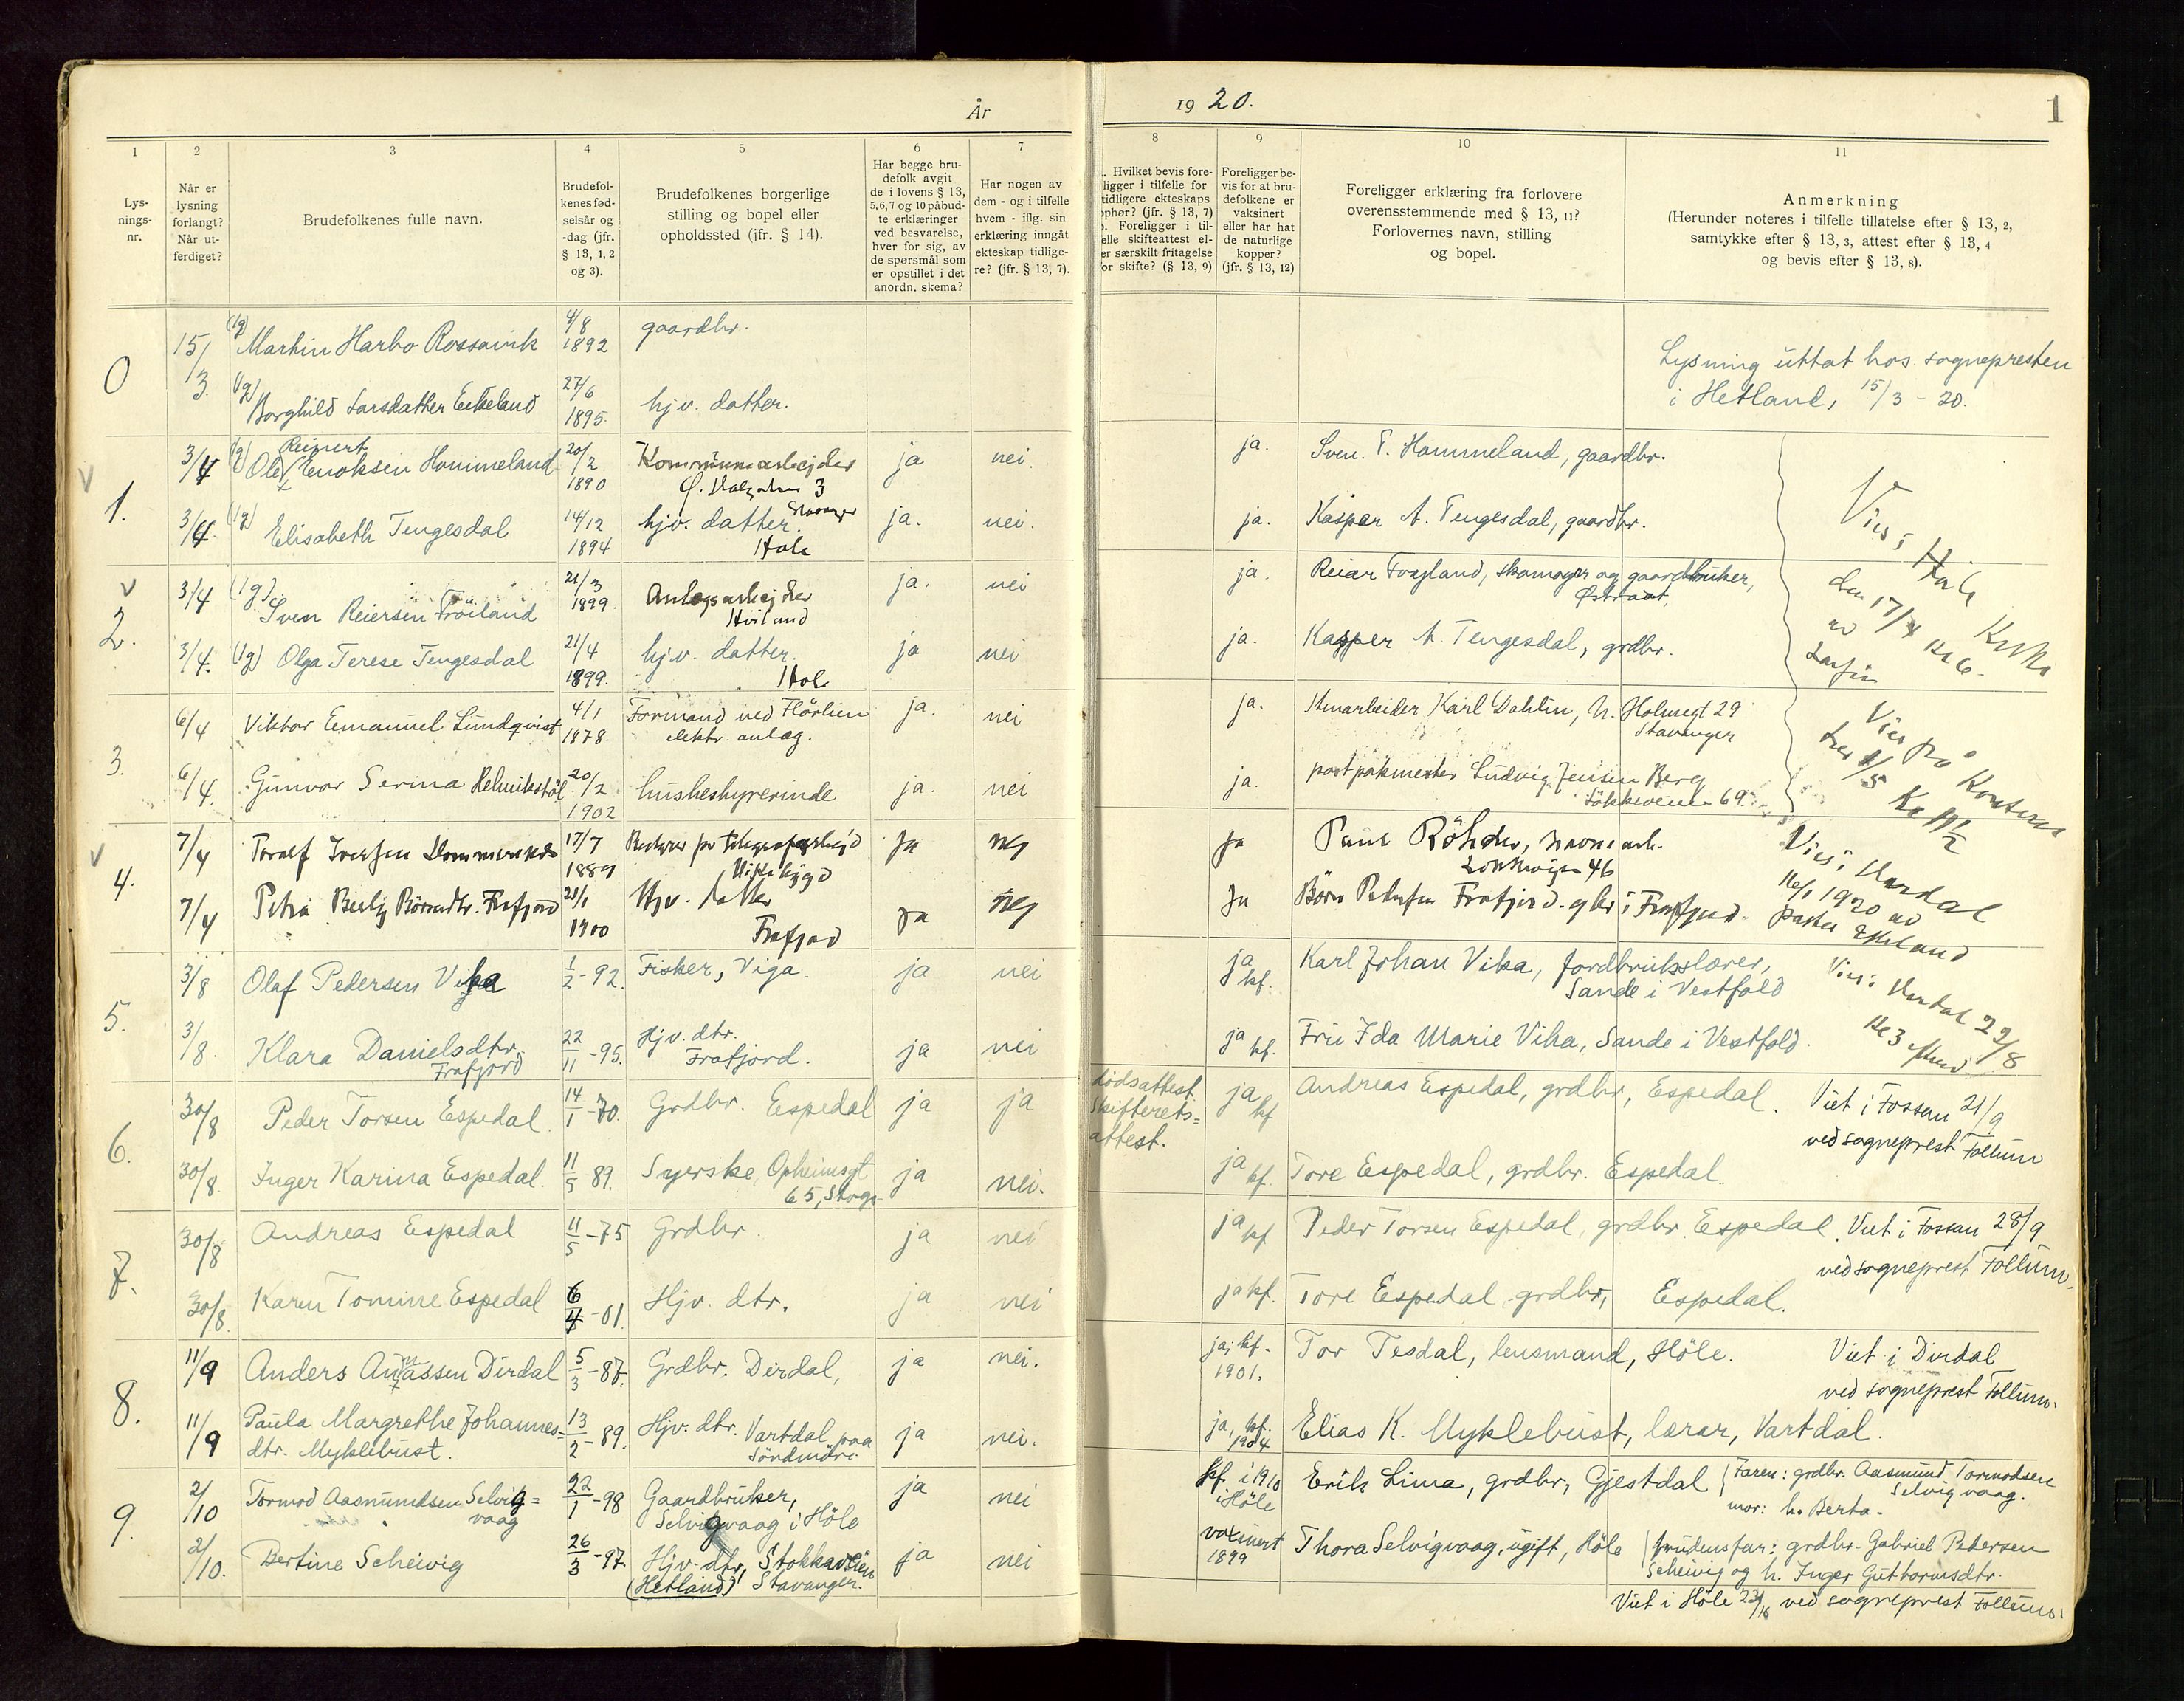 År
19 20.
1
1
2
3
4
5
6
7
8
9
10
11
Lys-
nings-
nr.
Når er
lysning
forlangt?
Når ut-
ferdiget?
Brudefolkenes fulle navn.
Brudefol-
kenes fød-
selsår og
-dag (jfr.
§ 13, 1, 2
og 3).
Brudefolkenes borgerlige
stilling og bopel eller
opholdssted (jfr. § 14).
Har begge bru-
defolk avgit
de i lovens § 13,
5,6,7 og 10 påbud-
te erklæringer
ved besvarelse,
hver for sig, av
de spørsmål som
er opstillet i det
anordn. skema?
Har nogen av
dem - og i tilfelle
hvem - iflg. sin
erklæring inngåt
ekteskap tidlige-
re? (jfr. § 13, 7).
. Hvilket bevis fore-
ligger i tilfelle for
tidligere ekteskaps
ophør? (jfr. § 13, 7)
. Foreligger i til-
elle skifteattest el-
er særskilt fritagelse
or skifte? (§ 13, 9)
Foreligger be-
vis for at bru-
defolkene er
vaksinert
eller har hat
de naturlige
kopper?
(jfr. § 13, 12)
Foreligger erklæring fra forlovere
overensstemmende med § 13, 11?
Forlovernes navn, stilling
og bopel.
Anmerkning
(Herunder noteres i tilfelle tillatelse efter § 13, 2,
samtykke efter § 13, 3, attest efter § 13, 4
og bevis efter § 13, 8).
0
15/3. (1g) Martin Harbo Rossavik 4/8 1892 gaardbr.
(1g) Borghild Larsdatter Eikeland 27/6 1895. hjv. datter.
Lysning uttat hos sognepresten
i Hetland, 15/3 - 20.
1.
3/4 (1g) Ole Reinert Enoksen Hommeland 20/2 1890 Kommunearbejder
3
Stavanger
ja nei. ja. Sven. T. Hommeland, gaardbr.
3/4 (1g) Elisabeth Tengesdal 14/12 1894 hjv. datter.
Hole
ja. nei. ja. Kasper A. Tengesdal, gaardbr.
Viet i Hole Kirke
den 17/4 kl 6.
2.
3/4 (1g) Sven Reiersen Fröiland 21/3 1899. Anlegsarbejder
ja. nei ja. Reiar Frøyland, skomager og gaardbruker,
Østraat.
3/4. (1g) Olga Terese Tengesdal 21/4 1899. hjv. datter.
Hole
ja nei ja. Kasper A. Tengesdal, grdbr.
3.
6/4 Viktor Emanuel Lundqvist 4/1 1878. Formand ved Flörlien
elektr. anlæg.
ja. nei ja. Stenarbeider Karl Dahlin, N. Holmegt 29
Stavanger
6/4. Gunvor Serina Helmikstöl 20/2 1902 husbestyrerinde
ja. nei ja. postpakmester Ludvig Jensen Berg
Lökkeveien 69.
Viet på Kontoret
den 1/5
4.
7/4 Toralf Iversen 17/7 1889
ja nej ja Paul Röhder,
Lökkeveien 46
7/4 Petra Berly Börresdtr. Frafjord 1900 Hjv. datter
Frafjord
ja nej ja Börre Pedersen Frafjord. gbr i Frafjord.
1920 av
pastor Ekeland
5.
3/8 Olaf Pedersen Vika 1/2 - 92. Fisker, Viga. ja nei ja kf. Karl Johan Vika, jordbrukslærer,
Sande i Vestfold
3/8. Klara Danielsdtr.
Frafjord
22/11 - 95. Hjv. dtr.
Frafjord.
ja nei ja kf. Fru Ida Marie Vika, Sande i Vestfold.
22/8
kl 3
6.
30/8 Peder Torsen Espedal. 14/1 - 70. Grdbr. Espedal ja ja dödsattest.
Skifterets=
attest.
ja kf Andreas Espedal, grdbr, Espedal. Viet i Fossan 21/9
ved sogneprest Follum
30/8. Inger Karina Espedal. 11/5 89. Syerske, Opheimsgt
65, Stvgr
ja nei. ja kf. Tore Espedal, grdbr. Espedal.
7.
30/8 Andreas Espedal 11/5 - 75 Grdbr. ja nei ja kf Peder Torsen Espedal, grdbr. Espedal. Viet i Fossan 28/9
ved sogneprest Follum.
30/8. Karen Tomine Espedal 6/4 - 01. Hjv. dtr. ja nei ja kf. Tore Espedal grdbr, Espedal.
8.
11/9 Anders Anassen Dirdal 5/3 - 87. Grdbr. Dirdal, ja nei. ja, kf. 1901. Tor Tesdal, lensmand, Höle. Viet i Dirdal
ved sogneprest Follum.
11/9 Paula Margrethe Johannes=
dtr. Myklebust.
13/2 - 89. Hjv. dtr. Vartdal paa
Söndmöre
ja nei. ja, kf. 1904 Elias K. Myklebust, lærar, Vartdal.
9.
2/10 Tormod Aasmundsen Selvig=
vaag
22/1 - 98 Gaardbruker,
Selvigvaag i Höle
ja nei kf. i 1910
i Höle
Erik Lima, grdbr, Gjestdal Faren: grdbr. Aasmund Tormodsen
Selvigvaag.
mor: h. Berta.
2/10. Bertine Scheivig 26/3 - 97. Hjv. dtr, Stokkaveien
(Hetland) Stavanger.
ja nei vaksinert
1899
Thora Selvigvaag, ugift, Höle Brudens far: grdbr. Gabriel Pedersen
Scheivig og h. Inger Guttormsdtr.
Viet i Höle ved sogneprest Follum.